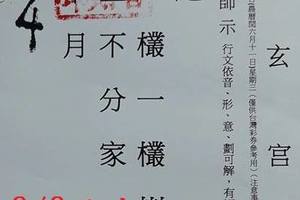 玄宮
農曆閏六月十一日星期三(僅供台灣彩券參考用)(注意事
師示 行文依音、形、意、劃可解,有
欉一欉
不分家
月
4